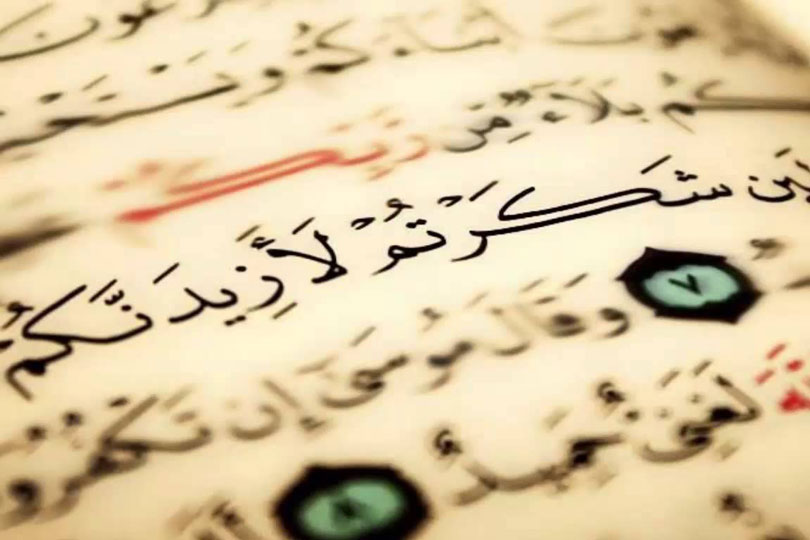 أَبْنَاءَكُمْ وَيَسْتَحْيُـ
ـكُم بَلَاءٌ مِّن رَّبِّكُـ
لَئِن شَكَرْتُمْ لَأَزِيدَنَّكُمْ
٧ وَقَالَ مُوسَىٰ إِن تَكْفُرُو
لَغَنِىٌّ حَمِيدٌ ٨